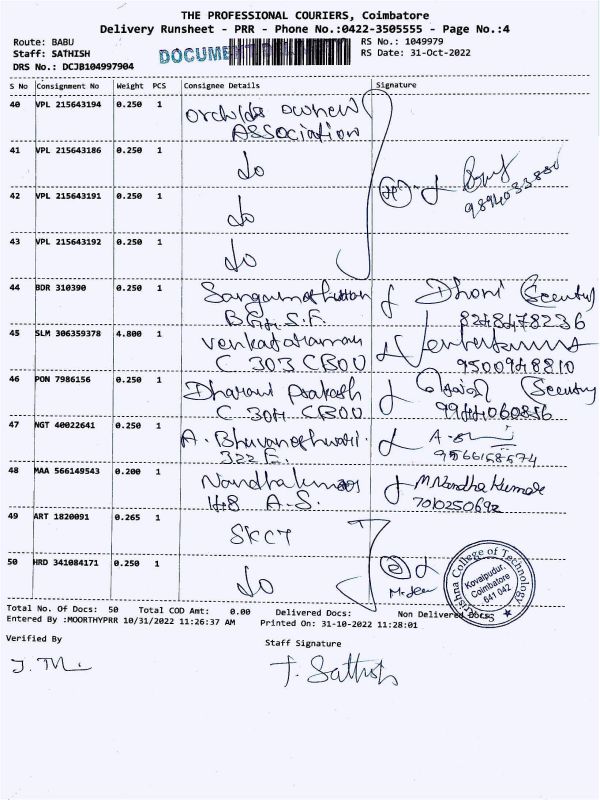 THE PROFESSIONAL COURIERS, Coimbatore
Delivery Runsheet - PRR - Phone No.:0422-3505555 - Page No.:4
Route: BABU
Staff: SATHISH
DRS No.: DCJB104997904
DOCUME
RS No.: 1049979
RS Date: 31-Oct-2022
S No Consignment No Weight PCS Consignee Details Signature
40 VPL 215643194 0.250 1 orchids owner
Association
41 VPL 215643186 0.250 1 do
42 VPL 215643191 0.250 1 do
43 VPL 215643192 0.250 1 do
44 BDR 310390 0.250 1 Dhoni
8248478236
45 SLM 306359378 4.800 1 Venkataraman
C 303 9500948810
46 PON 7986156 0.250 1 Dharani Prakash
C 304 9944060856
47 NGT 40022641 0.250 1 A. Bhuvaneshwari.
322 E.
48 MAA 566149543 0.200 1 Nandhakumar M Nandha Kumar
148 A.S.
49 ART 1820091 0.265 1 SKCT
50 HRD 341084171 0.250 1 do
College of Technology
Kovaipudur,
Coimbatore
641 042
Total No. Of Docs: 50 Total COD Amt: 0.00 Delivered Docs: Non Delivered Docs:
Entered By :MOORTHYPRR 10/31/2022 11:26:37 AM Printed On: 31-10-2022 11:28:01
Verified By Staff Signature
T. Sathish